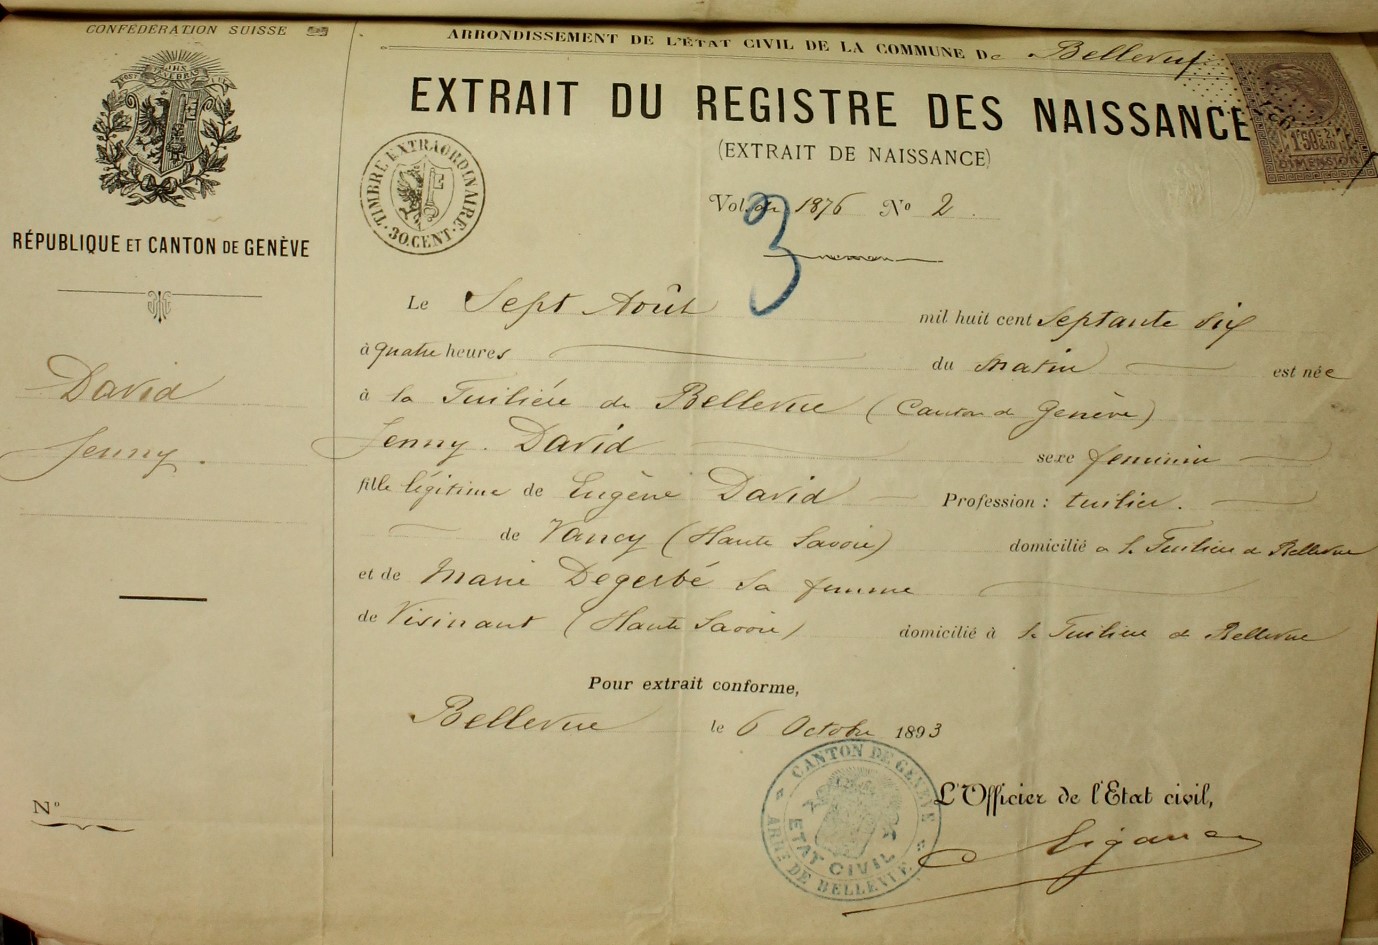 CONFÉDÉRATION SUISSE
RÉPUBLIQUE ET CANTON DE GENÈVE
David
Jenny.
N°
ARRONDISSEMENT DE L'ÉTAT CIVIL DE LA COMMUNE De Bellevue
EXTRAIT DU REGISTRE DES NAISSANCE
(EXTRAIT DE NAISSANCE)
TIMBRE EXTRAORDINAIRE
30.CENT.
DIMENSION
Vol. de 1876 N° 2
3
Le Sept Août mil huit cent septante six
à quatre heures du matin est née
à la Tuilière de Bellevue (Canton de Genève)
Jenny David sexe feminin
fille légitime de Eugène David Profession : tuilier.
de Vancy (Haute Savoie) domicilié à la Tuilière de Bellevue
et de Marie Degerbé sa femme
de Visinant (Haute Savoie) domicilié à la Tuilière de Bellevue
Pour extrait conforme,
Bellevue le 6 Octobre 1893
CANTON DE GENÈVE
ETAT CIVIL
ARR.T DE BELLEVUE
L'Officier de l'Etat civil,